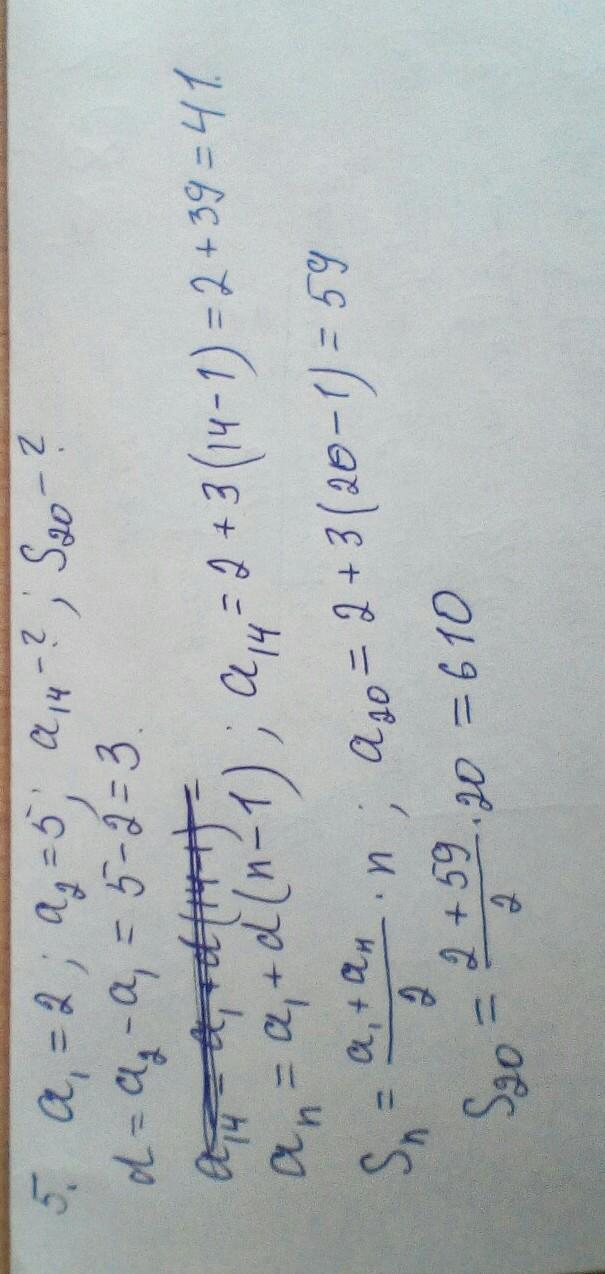 5. a₁ = 2; a₂ = 5; a₁₄ - ?; S₂₀ - ?
d = a₂ - a₁ = 5 - 2 = 3.
a₁₄ = a₁ + d(14-1) =
aₙ = a₁ + d(n-1); a₁₄ = 2 + 3(14-1) = 2 + 39 = 41.
Sₙ = (a₁ + aₙ)/2 · n; a₂₀ = 2 + 3(20-1) = 59
S₂₀ = (2 + 59)/2 · 20 = 610